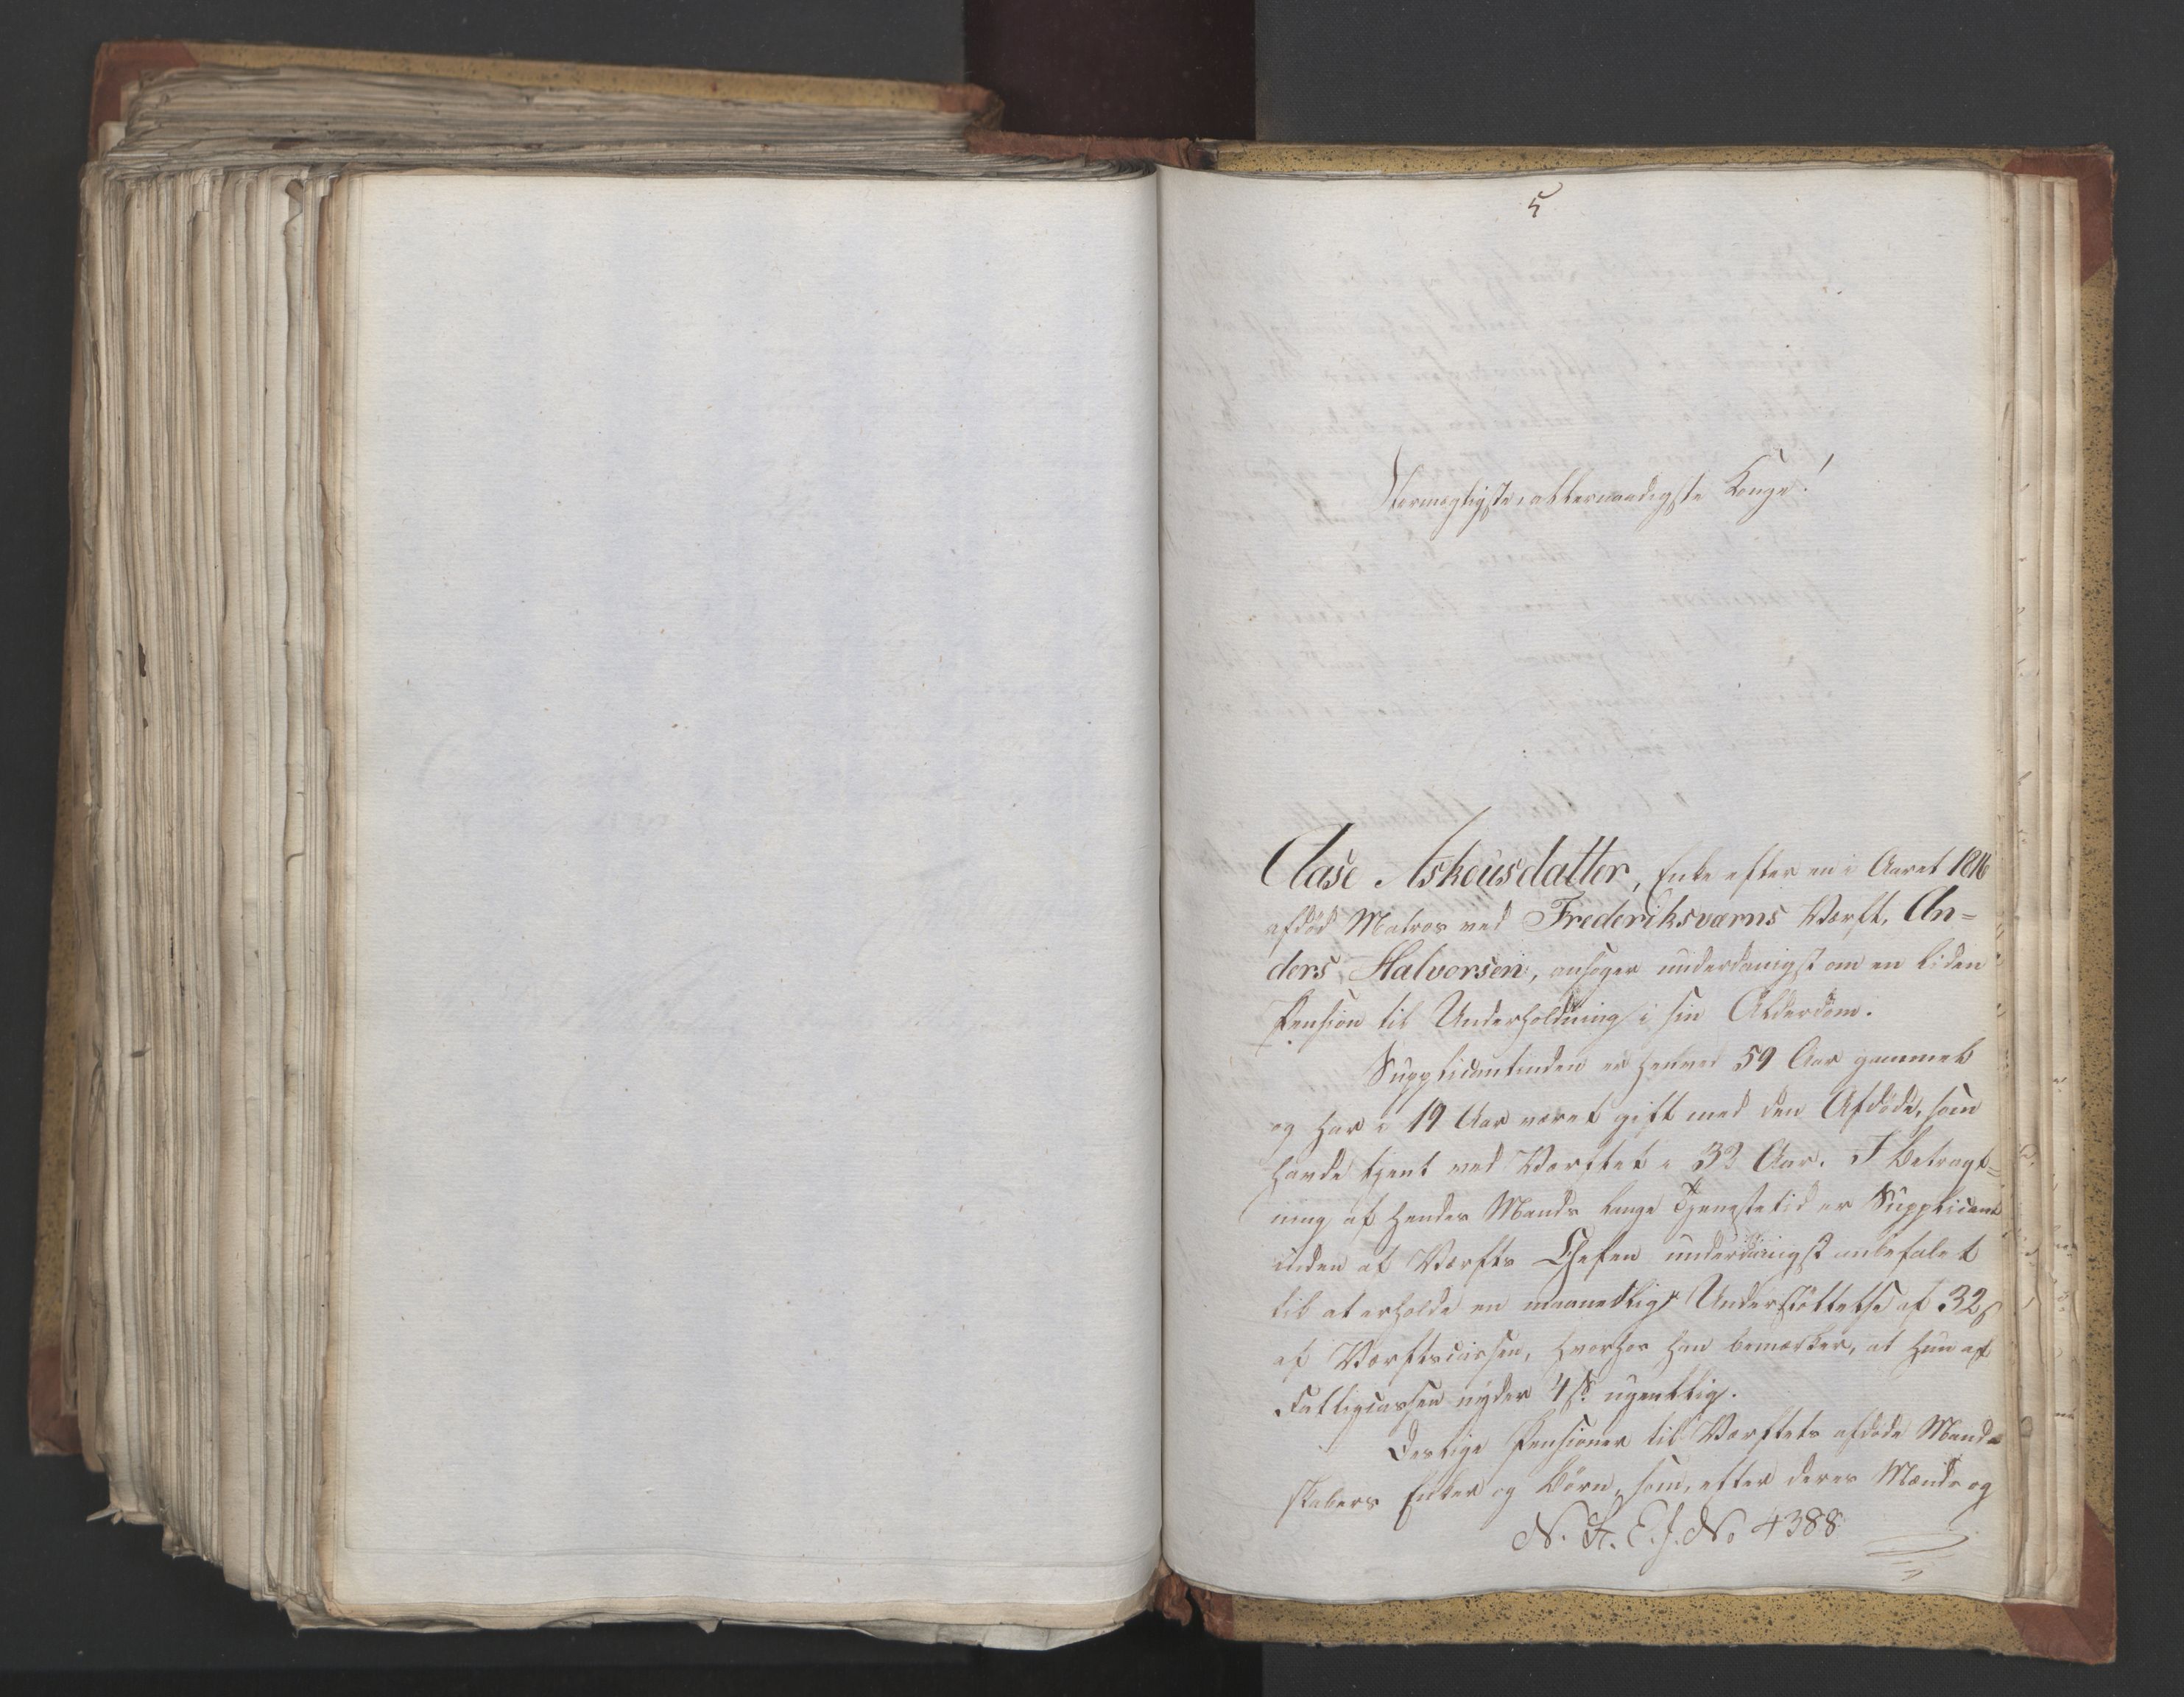 5
Stormægtigste, allernaadigste Konge!
Aase Askeusdatter, Enke efter en i Aaret 1816
afdød Matros ved Frederiksværns Værft, An=
ders Halvorsen, ansøger underdanigst om en liden
Pension til Underholdning i sin Alderdom.
Supplicantinden er henved 59 Aar gammel
og har i 19 Aar været gift med den Afdøde, som
havde tjent ved Værftet i 32 Aar. I Betragt=
ning af hendes Mands lange Tjenestetid er Supplicant
inden af Værfts Chefen underdanigst anbefalet
til at erholde en maanedlig Understøttelse af 32 s
af Værftscassen, hvorhos han bemærker, at hun af
Fattigcassen nyder 4 s. ugentlig.
Deslige Pensioner til Værftets afdøde Mand=
skabers Enker og Børn, som, efter deres Mænds og
N. H. E. J. No 4388